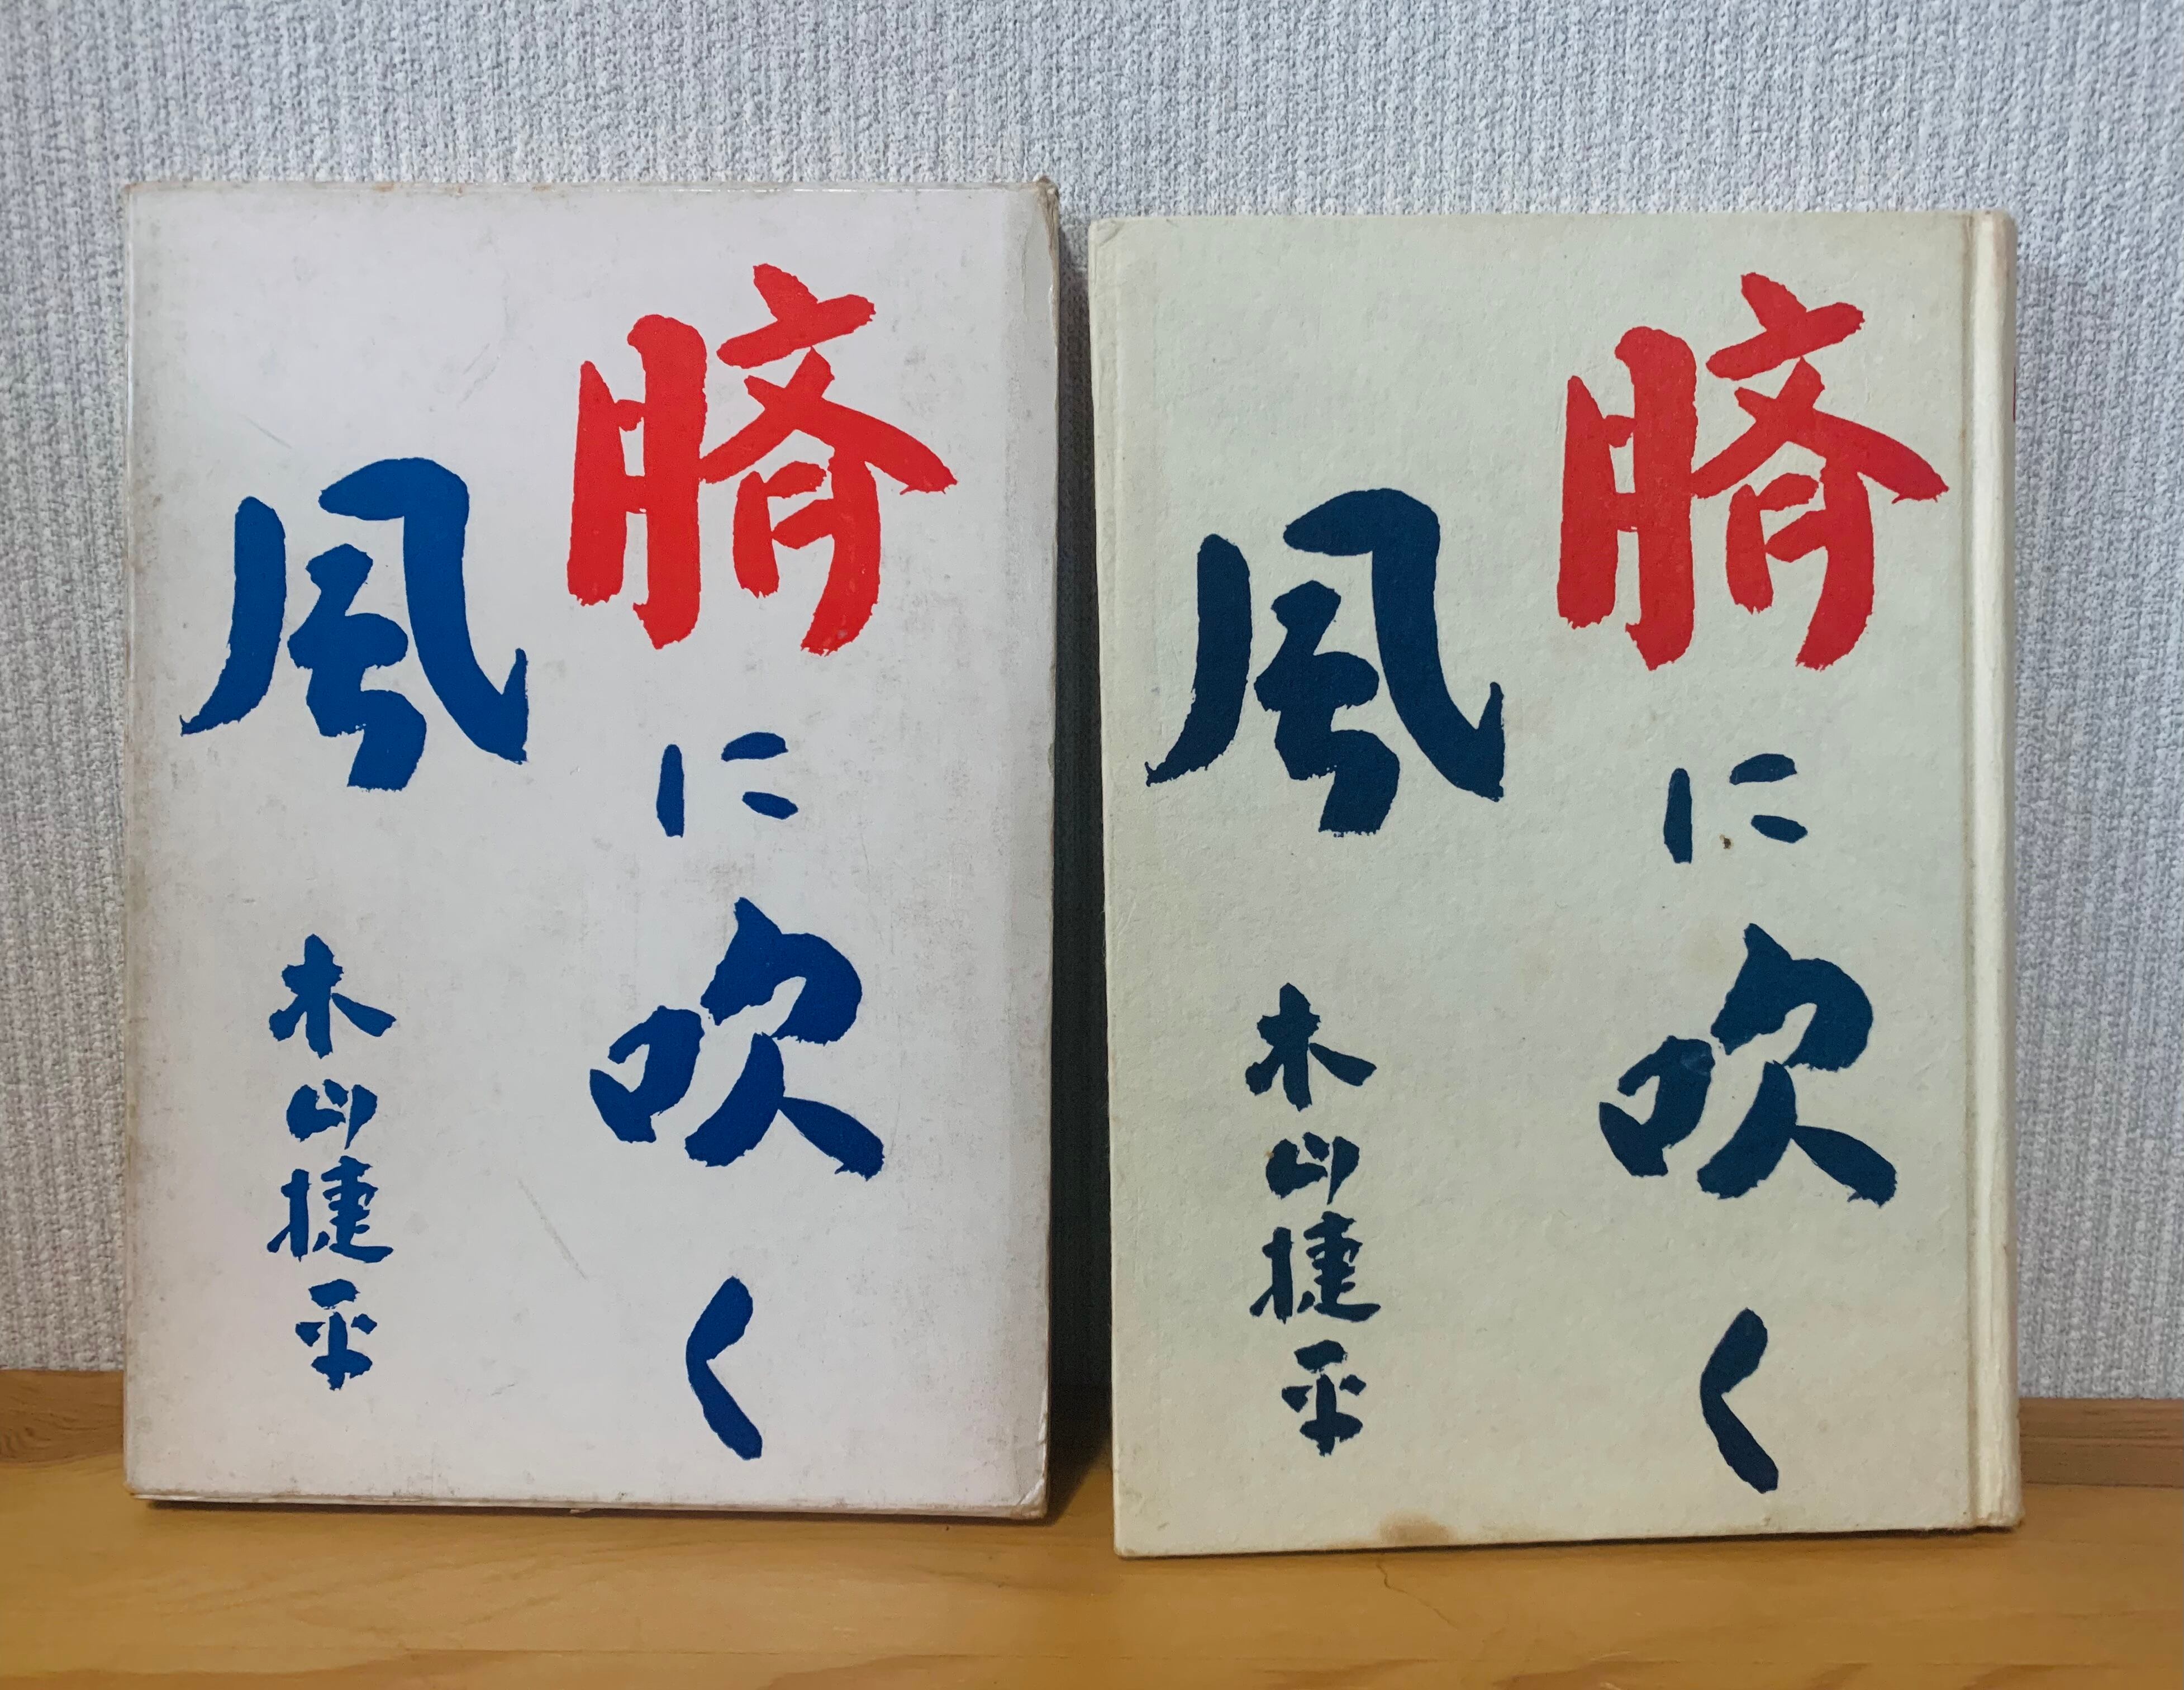 臍に吹く
風
木山捷平
臍に吹く
風
木山捷平